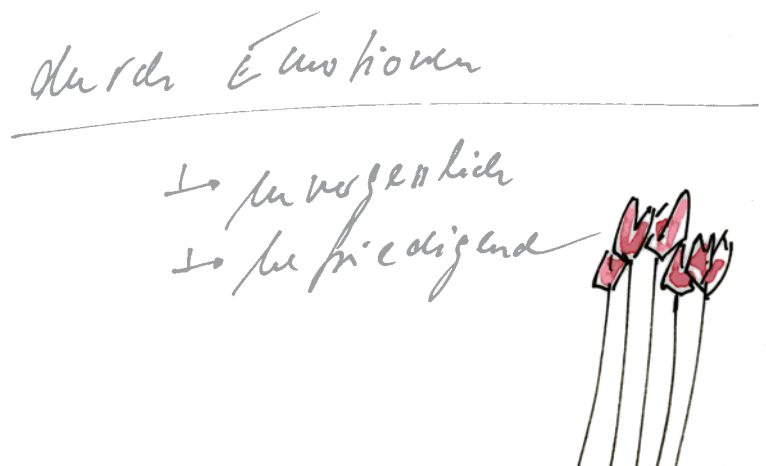 durch Emotionen
↦ unvergesslich
↦ befriedigend